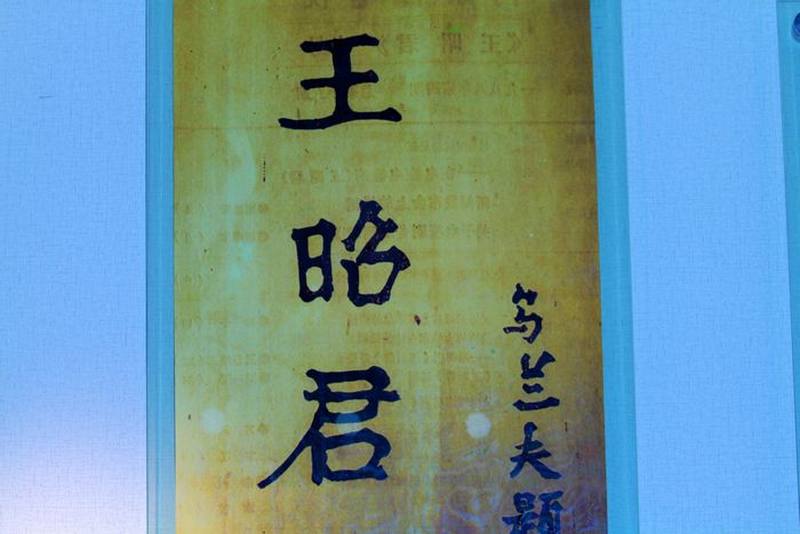 王昭君
乌兰夫题